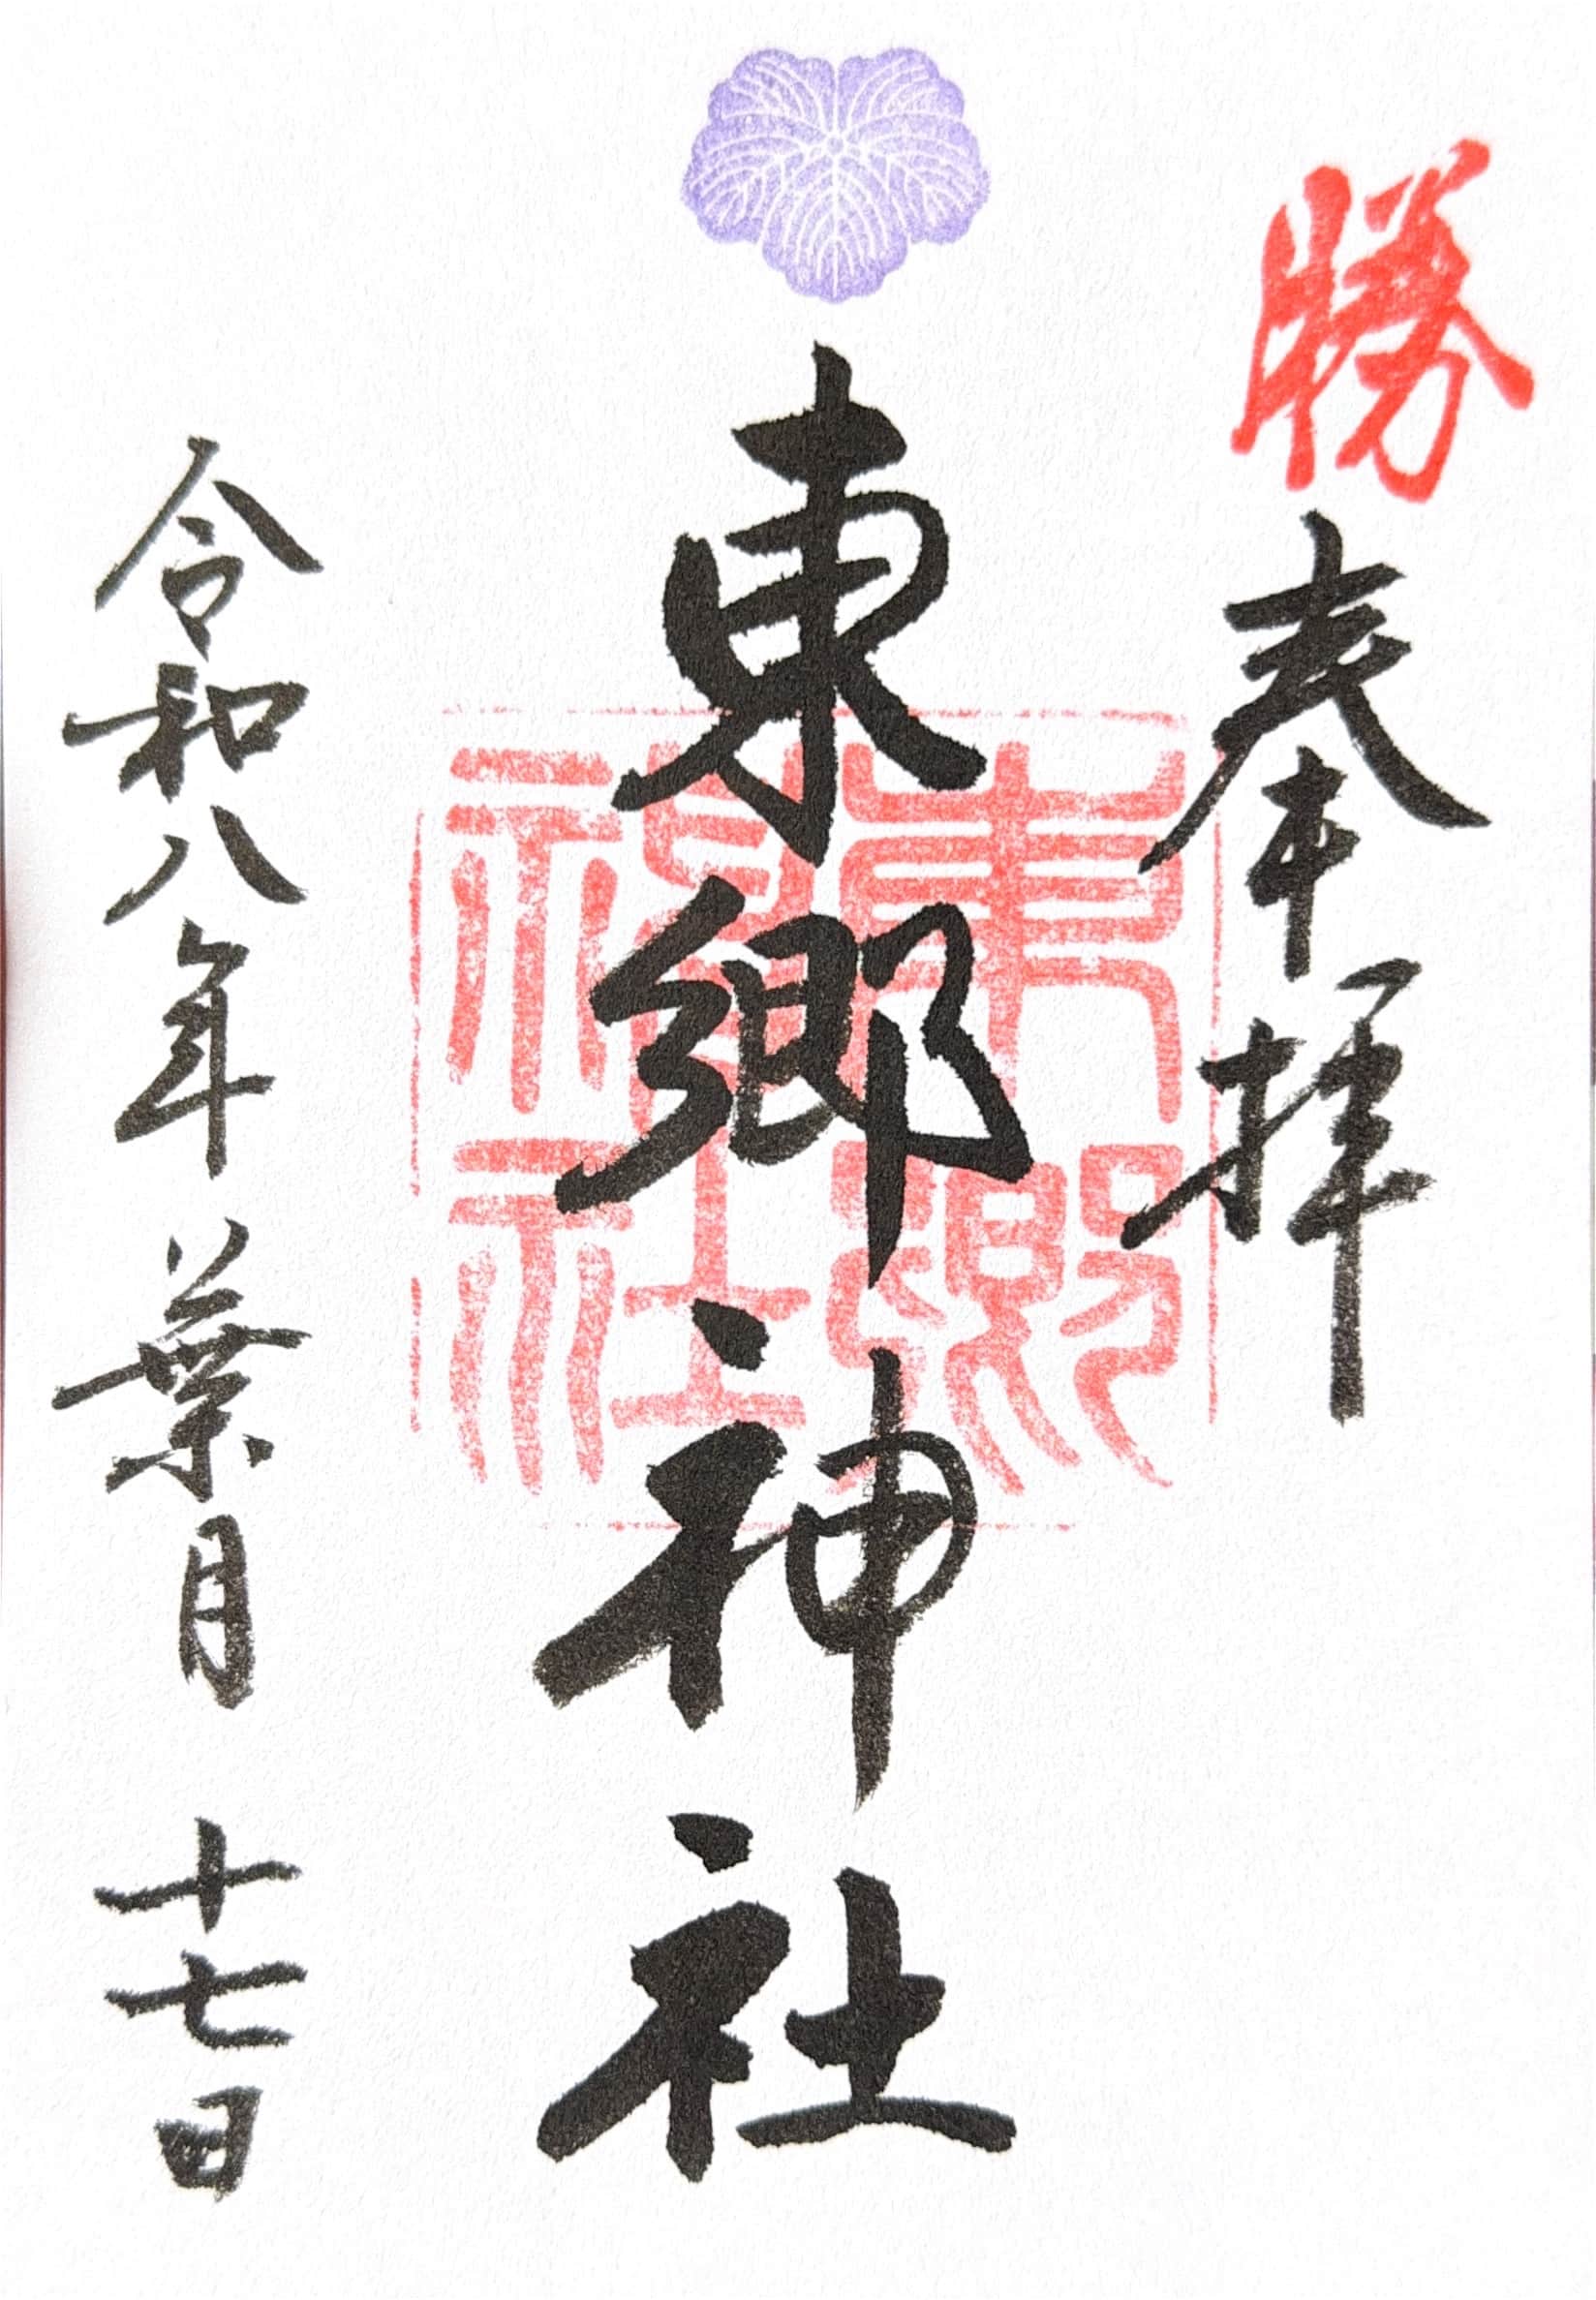 勝
奉拝
東郷神社
東郷神社
令和八年 葉月 十七日